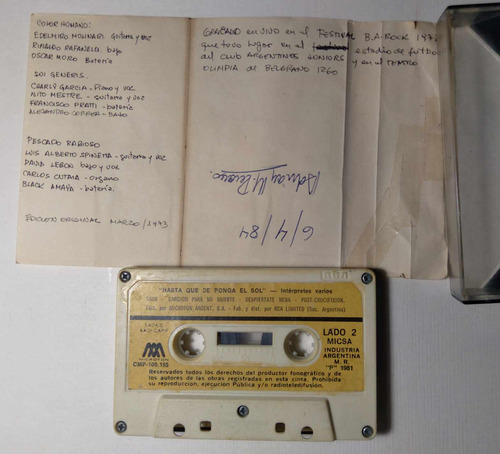 COLOR HUMANO:
EDELMIRO MOLINARI guitarra y voz
RINALDO RAFANELLI bajo
OSCAR MORO Batería
SUI GENERIS.
CHARLY GARCIA - Piano y voz
NITO MESTRE - guitarra y voz
FRANCISCO PRATTI - batería
ALEJANDRO CORREA - BAJO
PESCADO RABIOSO
LUIS ALBERTO SPINETTA - guitarra y voz
DAVID LEBON bajo y voz
CARLOS CUTAIA - organo
BLACK AMAYA - batería.
EDICION ORIGINAL MARZO/1973
GRABADO en VIVO en el FESTIVAL B.A. ROCK 197
que tuvo lugar en el estadio de futbol
del CLUB ARGENTINOS JUNIORS y en el TEATRO
OLIMPIA de BELGRANO 1260
6/4/84
"HASTA QUE SE PONGA EL SOL" — Intérpretes varios
CANCION PARA MI MUERTE - DESPIERTATE NENA - POST-CRUCIFIXION.
Edit. por MICROFON ARGENT. S.A. - Fab. y dist. por RCA LIMITED (Suc. Argentina)
SADAIC
BIEM
SADAIC-CAPIF
LADO 2
MICSA
MICROFON
CMP-100.195
INDUSTRIA
ARGENTINA
M. R.
"P" 1981
Reservados todos los derechos del productor fonográfico y de
los autores de las obras registradas en esta cinta. Prohibida
su reproducción, ejecución Pública y/o radioteledifusión.